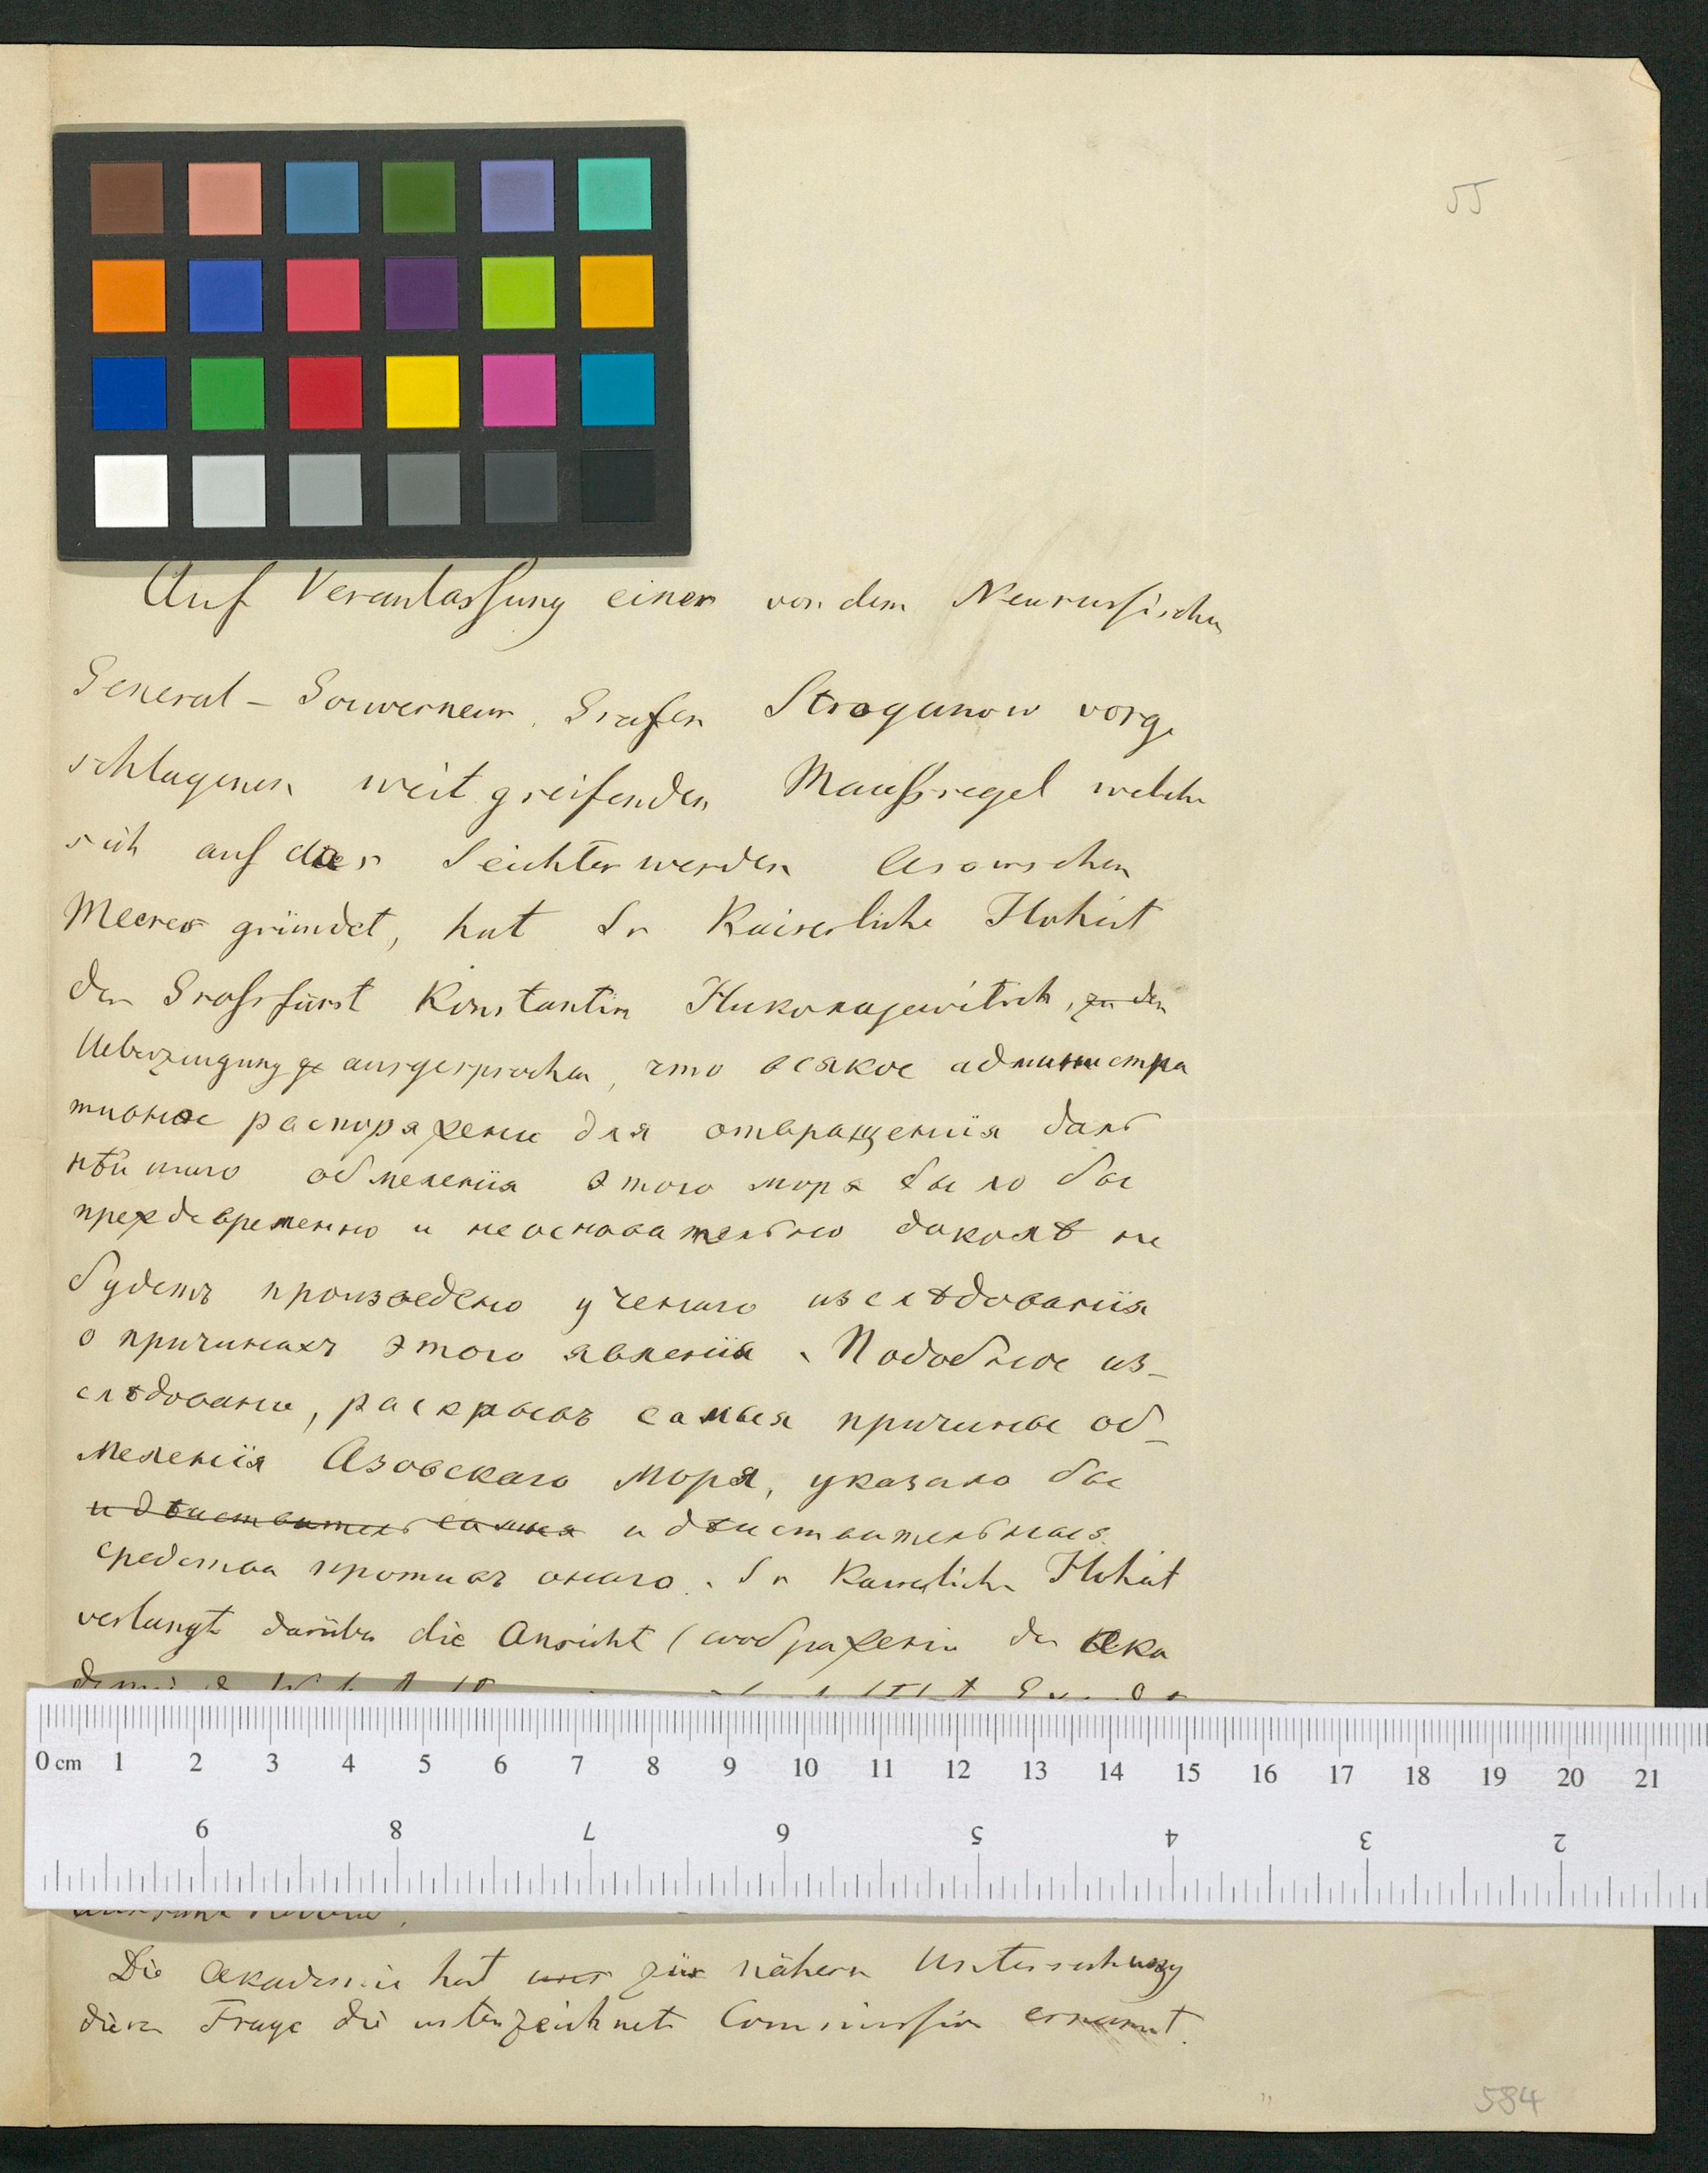 55
Auf Veranlassung einer von dem Neurussischen
General - Gouverneur, Grafen Stroganow vorge
schlagenen weit greifenden Maassregel welche
sich auf das Seichter werden Asowschen
Meeres gründet, hat Sr Kaiserliche Hoheit
der Grossfürst Konstantin Nikolajewitsch, zu den
Ueberzeugung ge ausgesprochen, что всякое администра
тивное распоряжение для отвращенія даль
нѣйшаго обмеленія этого моря было бы
преждевременно и неосновательно доколѣ не
будетъ произведено ученаго изслѣдованія
о причинахъ этого явленія. Подобное из-
слѣдованіе, раскрывъ самыя причины об-
меленія Азовскаго моря, указало бы
и дѣйствитель самыя и дѣйствительныя
средства противъ онаго. Sr Kaiserliche Hoheit
verlangt darüber die Ansicht (соображенія der Aka
Die Akademie hat zur nähern Untersuchung
dieser Frage die unterzeichnete Commission ernannt.
584
0 cm 1 2 3 4 5 6 7 8 9 10 11 12 13 14 15 16 17 18 19 20 21
9 8 7 6 5 4 3 2